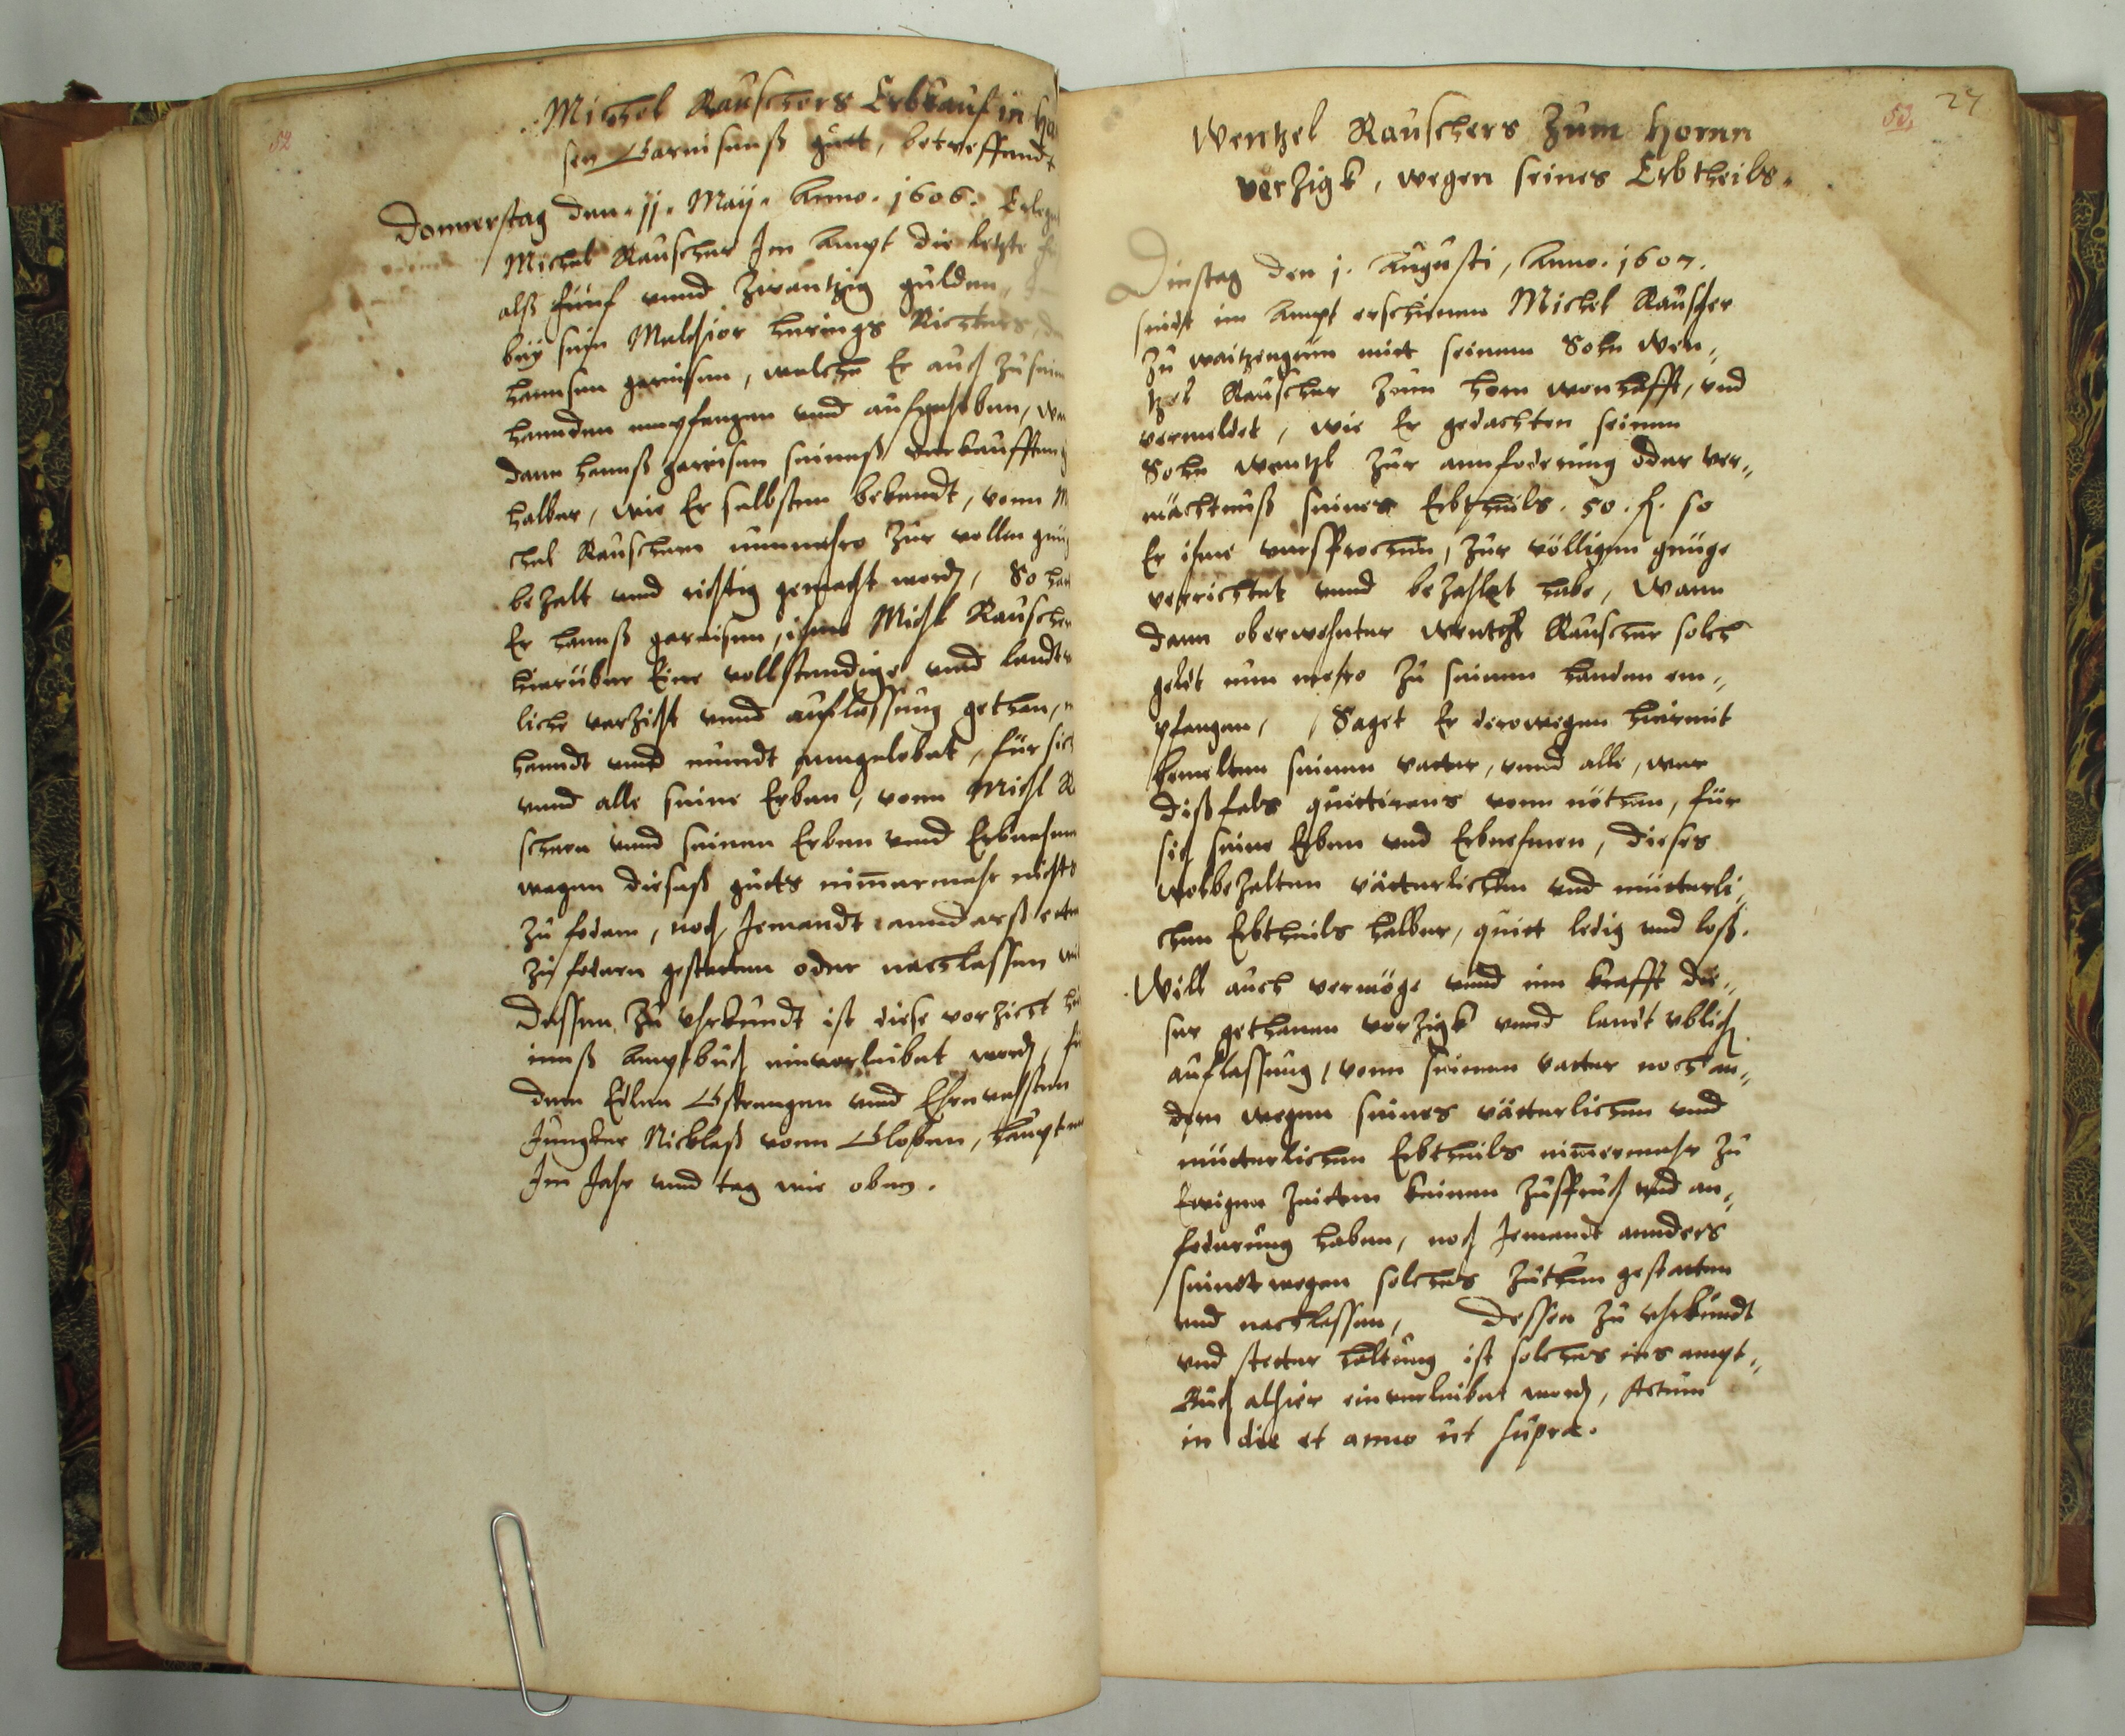 52
Michel Rauschers Erbkauf in Ha
sen Garnisenß gutt, betreffendt
Donnerstag den 11. Maÿ Anno 1606. Erlegt
Michel Rauscher Im Ampt die letzte
alß fünf vnnd Zwantzig gulden,
beÿ sein Melchior Hurings Richters,
hannsen garnisen, welche Er auch zu sein
hannden empfangen vnd aufgehaben,
dann hannß garnisen seineß verkaufften
halber, wie Er selbsten bekandt, vonn Mi
chel Rauschern nunmehro zur vollen gnüg
bezalt vnnd richtig gemacht word, So hat
Er hannß garnisen, ihme Michl Rauscher
hierüber Eine vollstendige vnnd landt
liche verzicht vnnd auflassung gethan,
hanndt vnnd mundt anngelobet, für sich
vnnd alle seine Erben, vonn Michl Ra
schern vnnd seinen Erben vnnd Erbnehmen
wegen diesaß gutts nimmermehr nichts
zu fodern, noch Iemandt annderß
zu fodern gestatten oder nachlassen
Dessen zu vhrkundt ist diese verzicht
innß Amptbuch einverleibet word,
dem Edlen Gstrengen vnnd Ehrnvessten
Iungker Nicklaß vonn Gloßen, haupt
Im Jahr vnnd tag wie oben.
53.
27
Wentzel Rauschers Zum Hornn
verzigk, wegen seines Erbtheils.
Dinstag den 1. Augusti, Anno. 1607.
seindt im Ampt erschienen Michel Rauscher
zu Waitzengrün mitt seinem Sohn Wen„
tzel Rauscher zum horn wonhafft, vnd
vermeldet, wie Er gedachten seinem
Sohn Wentzl zur annfoderung oder ver„
mächtnuß seines Erbtheils. 50. fl. so
Er ihme versprochen, zur völligen gnüge
verrichtet vnnd bezahlet habe, Wann
dann oberwehnter Wentzl Rauscher solch
geldt nun mehro zu seinen handen em„
pfangen, Saget Er derowegen hiermit
bemelten seinen vatter, vnnd alle, wer
dißfals quittirens vonn nöthen, für
sich seine Erben vnd Erbnehmen, dieses
wolbezalten vätterlichen vnd mütterli„
chen Erbtheils halber, quitt ledig vnd loß.
Will auch vermöge vnnd inn krafft die„
ser gethanen verzigk vnnd landt vblich
auflassung, vonn seinem vatter noch an„
dern wegen seines vätterlichen vnd
mütterlichen Erbtheils nimmermehr zu
Ewigen zeitten keinen zuspruch vnd an„
foderung haben, noch Jemandt annders
seinetwegen solches zuthun gestatten
vnd nachlassen, Dessen zu vhrkundt
vnd stetter haltung ist solches ins ampt„
Buch alhier einverleibet word, Actum
in die et anno ut supra.